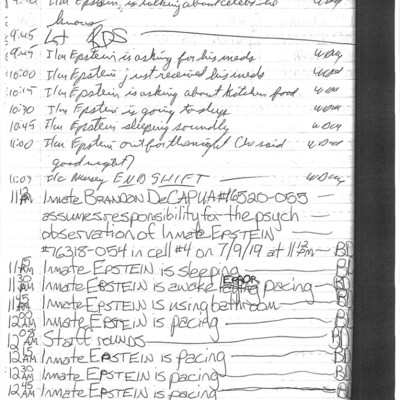 I/m Epstein, is talking about celebs he
knows
9:45 Lt RDS
9:45 I/m Epstein is asking for his meds
10:00 I/m Epstein, just received his meds
10:15 I/m Epstein is asking about Kitchen food
10:30 I/m Epstein is going to sleep
10:45 I/m Epstein sleeping soundly
11:00 I/m Epstein out for the night said
good night
11:07 END SHIFT
Inmate BRANDON DeCAPUA #
assumes responsibility for the psych
observation of Inmate EPSTEIN
#76318-054 in cell #4 on 7/9/19 at BD
11 15 Inmate EPSTEIN is sleeping BD
11 30 Inmate EPSTEIN is awake ERROR pacing BD
11 45 Inmate EPSTEIN is using bathroom BD
12 00 AM Inmate EPSTEIN is pacing BD
12 08 AM Staff rounds BD
12 15 AM Inmate EPSTEIN is pacing BD
12 30 AM Inmate EPSTEIN is pacing BD
12 45 AM Inmate EPSTEIN is pacing BD